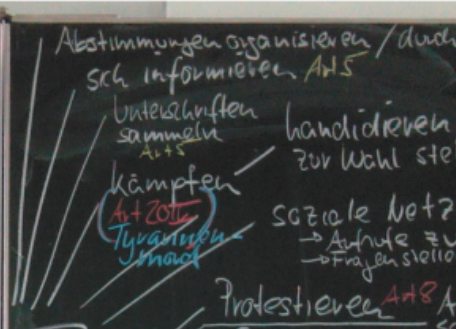 Abstimmungen organisieren / durch
sich informieren Art5
Unterschriften
sammeln
Art5
kandidieren
zur Wahl ste
kämpfen
(Art20IV)
Tyrannen-
mord
soziale Netz
→ Aufrufe zu
→ Fragen stelle
Protestieren Art8 A